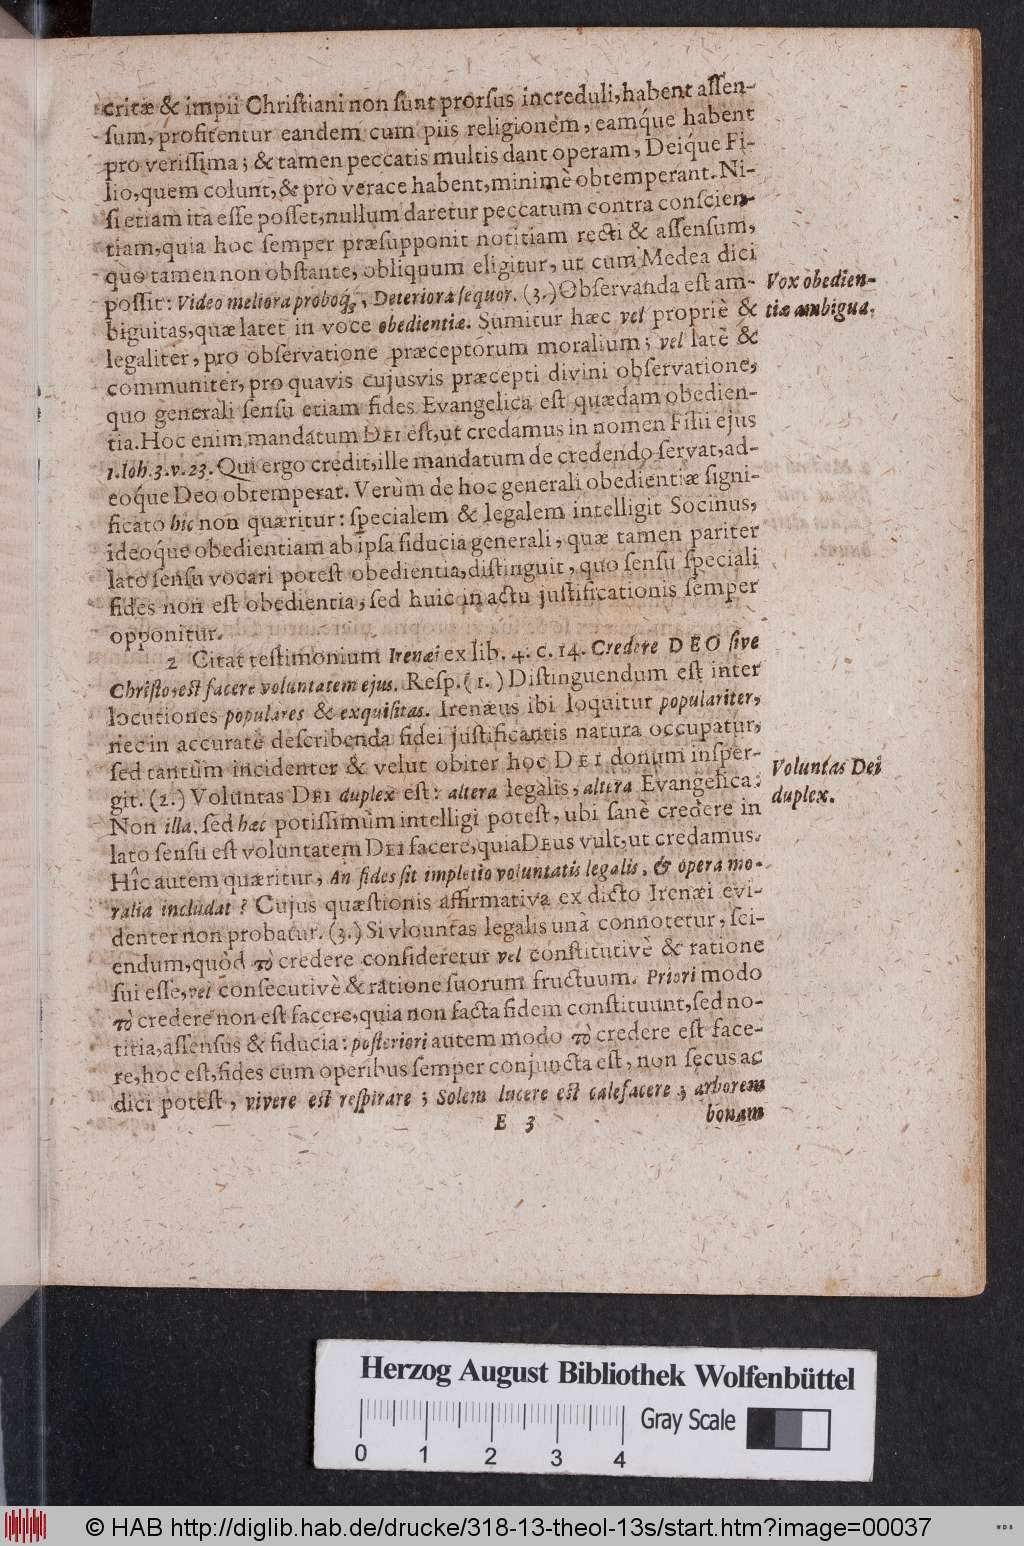 critæ & impii Christiani non sunt prorsus increduli, habent assen-
sum, profitentur eandem cum piis religionem, eamq́ue habent
pro verissima; & tamen peccatis multis dant operam, Deiq́ue Fi-
lio, quem colunt, & pro verace habent, minimè obtemperant. Ni-
si etiam ita esse posset, nullum daretur peccatum contra conscien-
tiam, quia hoc semper præsupponit notitiam recti & assensum,
quo tamen non obstante, obliquum eligitur, ut cum Medea dici
possit: Video meliora proboq́;, Deteriora sequor. (3.) Observanda est am-
Vox obedien-
tiæ ambigua.
biguitas, quæ latet in voce obedientiæ. Sumitur hæc vel propriè &
legaliter, pro observatione præceptorum moralium; vel latè &
communiter, pro quavis cujusvis præcepti divini observatione,
quo generali sensu etiam fides Evangelica est quædam obedien-
tia. Hoc enim mandatum DEI est, ut credamus in nomen Filii ejus
1. Ioh. 3. v. 23. Qui ergo credit, ille mandatum de credendo servat, ad-
eoq́ue Deo obtemperat. Verùm de hoc generali obedientiæ signi-
ficato hic non quæritur: specialem & legalem intelligit Socinus,
ideoq́ue obedientiam ab ipsa fiducia generali, quæ tamen pariter
lato sensu vocari potest obedientia, distinguit, quo sensu speciali
fides non est obedientia, sed huic in actu justificationis semper
opponitur.
2 Citat testimonium Irenæi ex lib. 4. c. 14. Credere DEO sive
Christo, est facere voluntatem ejus. Resp. (1.) Distinguendum est inter
locutiones populares & exquisitas. Irenæus ibi loquitur populariter,
nec in accuratè describenda fidei justificantis natura occupatur,
sed tantùm incidenter & velut obiter hoc DEI donum insper-
git. (2.) Voluntas DEI duplex est: altera legalis, altera Evangelica:
Voluntas Dei
duplex.
Non illa, sed hæc potissimùm intelligi potest, ubi sanè credere in
lato sensu est voluntatem DEI facere, quia DEUS vult, ut credamus.
Hîc autem quæritur, An fides sit impletio voluntatis legalis, & opera mo-
ralia includat? Cujus quæstionis affirmativa ex dicto Irenæi evi-
denter non probatur. (3.) Si vlountas legalis unà connotetur, sci-
endum, quòd τὸ credere consideretur vel constitutivè & ratione
sui esse, vel consecutivè & ratione suorum fructuum. Priori modo
τὸ credere non est facere, quia non facta fidem constituunt, sed no-
titia, assensus & fiducia: posteriori autem modo τὸ credere est face-
re, hoc est, fides cum operibus semper conjuncta est, non secus ac
dici potest, vivere est respirare; Solem lucere est calefacere; arborem
E 3
bonam
Herzog August Bibliothek Wolfenbüttel
0 1 2 3 4
Gray Scale
© HAB http://diglib.hab.de/drucke/318-13-theol-13s/start.htm?image=00037